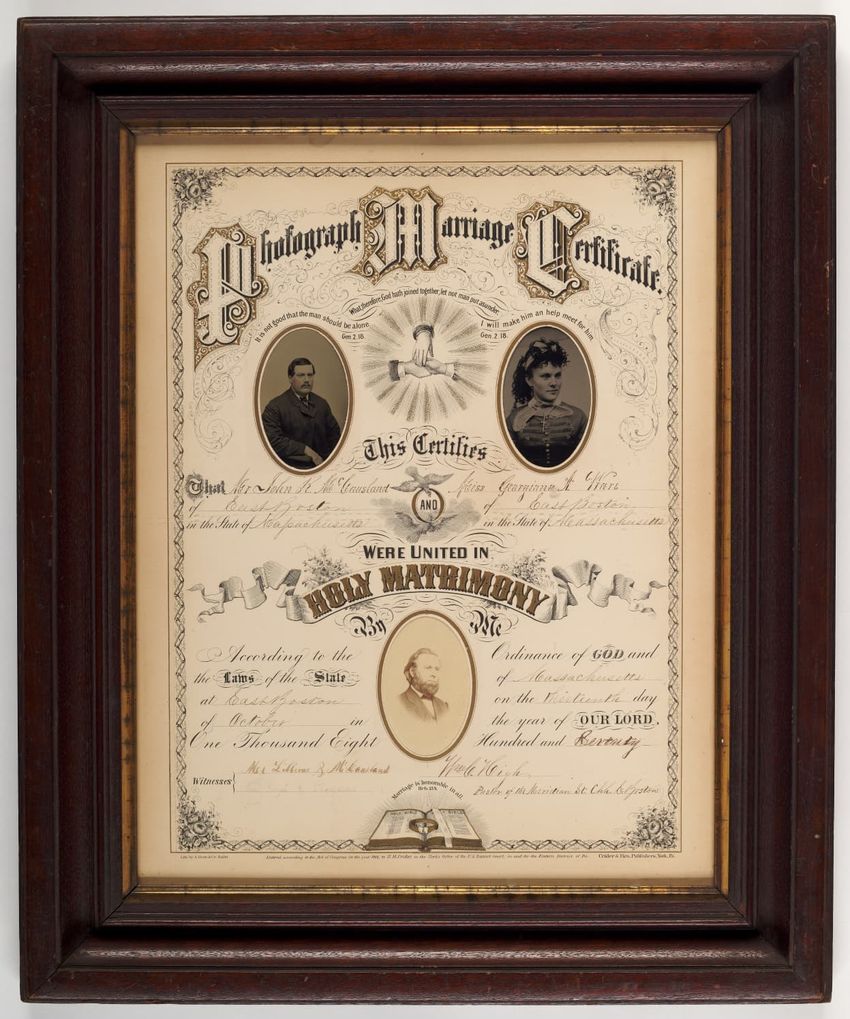 Photograph Marriage Certificate.
What therefore God hath joined together, let not man put asunder.
It is not good that the man should be alone
Gen 2. 18.
I will make him an help meet for him
Gen. 2. 18.
This Certifies
That Mr John K. Mc Causland AND Miss Georgianna A
of East Boston of East Boston
in the State of Massachusetts in the State of Massachusetts
WERE UNITED IN
HOLY MATRIMONY
By Me
According to the Ordinance of GOD and
the Laws of the State of Massachusetts
at East Boston on the thirteenth day
of October in the year of OUR LORD.
One Thousand Eight Hundred and Seventy
Witnesses
Mc Causland
Pastor of the Meridian St. Boston
Marriage is honorable in all
HOLY BIBLE
Entered according to the Act of Congress in the year in the Clerk's Office of the U.S. District Court, in and for the Eastern District of Pa.
Crider & Bro. Publishers, York, Pa.